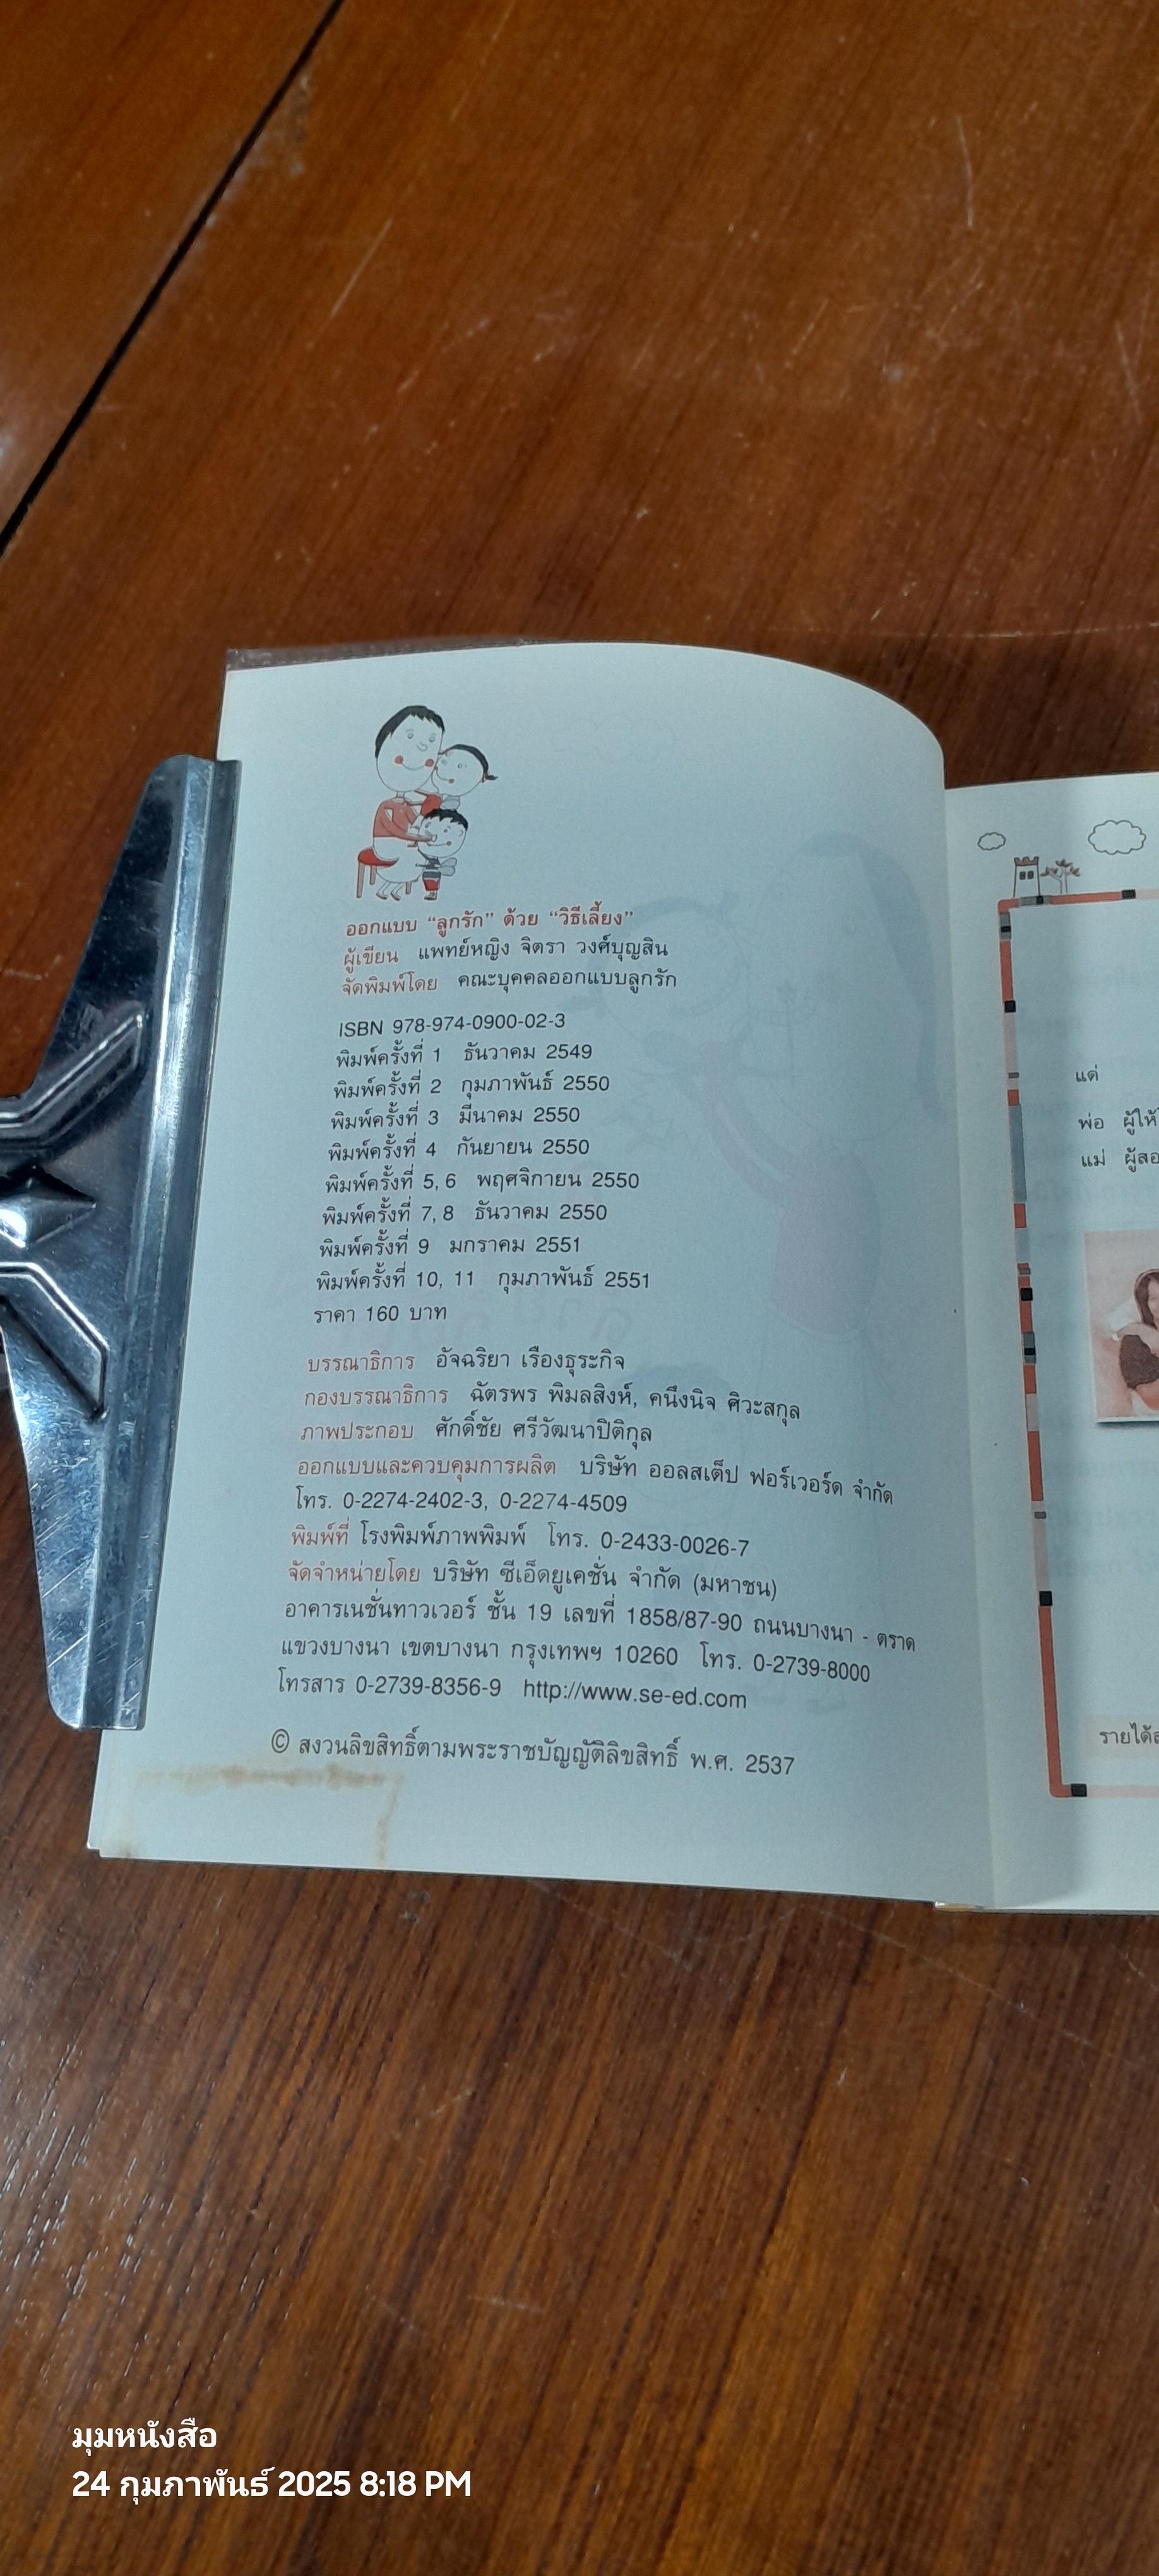 ออกแบบ “ลูกรัก” ด้วย “วิธีเลี้ยง”
ผู้เขียน แพทย์หญิง จิตรา วงศ์บุญสิน
จัดพิมพ์โดย คณะบุคคลออกแบบลูกรัก
ISBN 978-974-0900-02-3
พิมพ์ครั้งที่ 1 ธันวาคม 2549
พิมพ์ครั้งที่ 2 กุมภาพันธ์ 2550
พิมพ์ครั้งที่ 3 มีนาคม 2550
พิมพ์ครั้งที่ 4 กันยายน 2550
พิมพ์ครั้งที่ 5, 6 พฤศจิกายน 2550
พิมพ์ครั้งที่ 7, 8 ธันวาคม 2550
พิมพ์ครั้งที่ 9 มกราคม 2551
พิมพ์ครั้งที่ 10, 11 กุมภาพันธ์ 2551
ราคา 160 บาท
บรรณาธิการ อัจฉริยา เรืองธุระกิจ
กองบรรณาธิการ ฉัตรพร พิมลสิงห์, คนึงนิจ ศิวะสกุล
ภาพประกอบ ศักดิ์ชัย ศรีวัฒนาปิติกุล
ออกแบบและควบคุมการผลิต บริษัท ออลสเต็ป ฟอร์เวอร์ด จำกัด
โทร. 0-2274-2402-3, 0-2274-4509
พิมพ์ที่ โรงพิมพ์ภาพพิมพ์ โทร. 0-2433-0026-7
จัดจำหน่ายโดย บริษัท ซีเอ็ดยูเคชั่น จำกัด (มหาชน)
อาคารเนชั่นทาวเวอร์ ชั้น 19 เลขที่ 1858/87-90 ถนนบางนา - ตราด
แขวงบางนา เขตบางนา กรุงเทพฯ 10260 โทร. 0-2739-8000
โทรสาร 0-2739-8356-9 http://www.se-ed.com
© สงวนลิขสิทธิ์ตามพระราชบัญญัติลิขสิทธิ์ พ.ศ. 2537
แด่
พ่อ ผู้ให้
แม่ ผู้สอ
รายได้ส
มุมหนังสือ
24 กุมภาพันธ์ 2025 8:18 PM